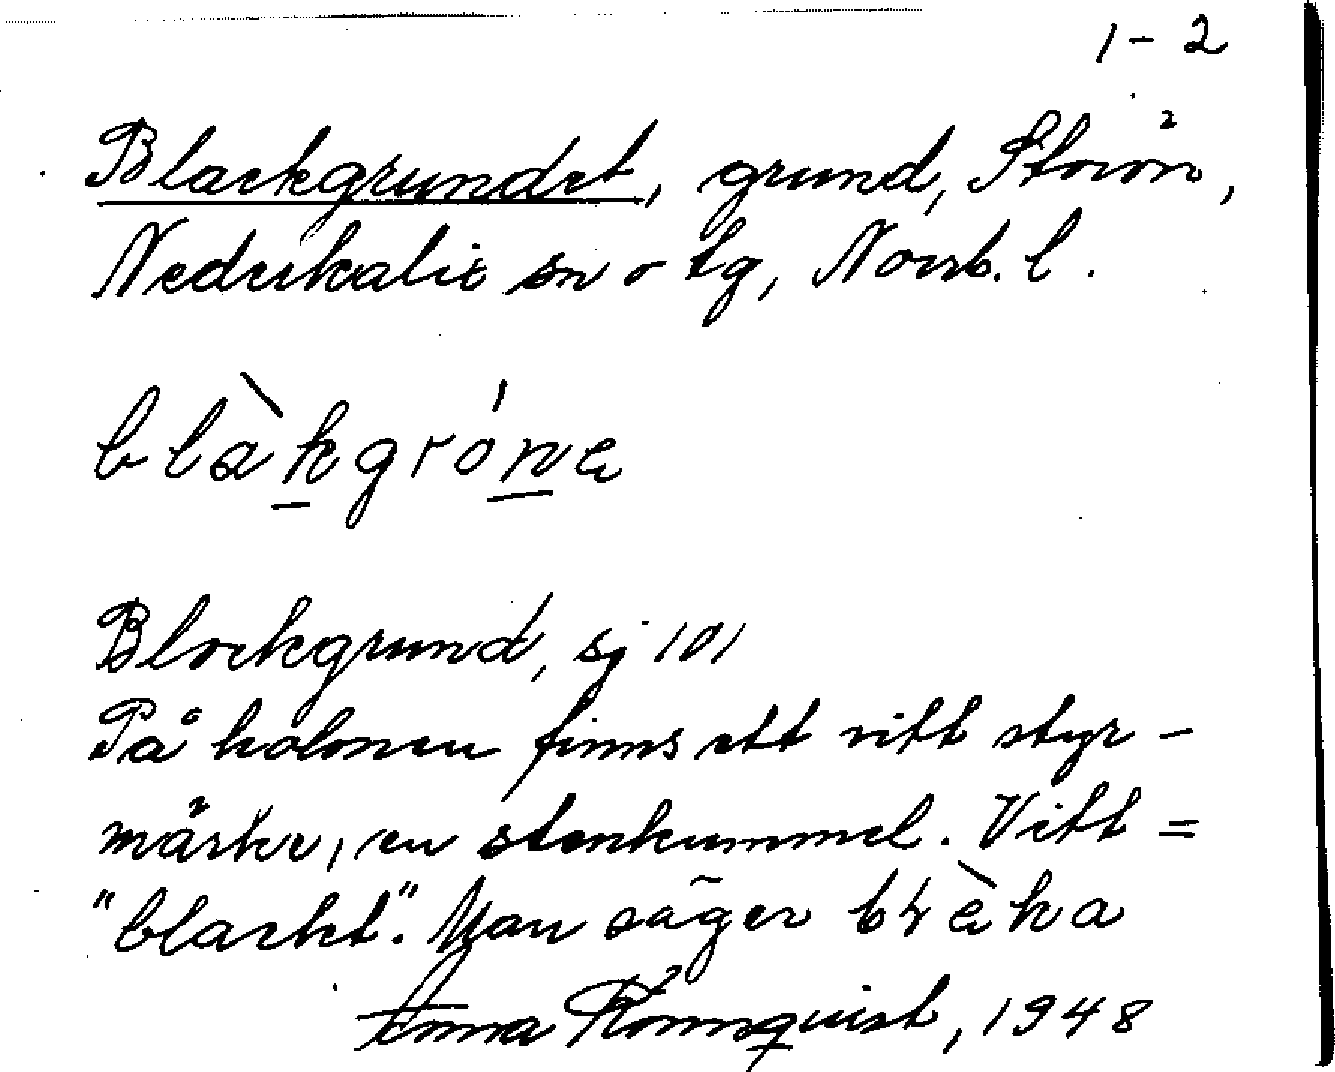 1-2
Blackgrundet, grund, Storön,
Nederkalix sn o tg, Norrb. l.
blàkgróne
Blockgrund, sj 101
På holmen finns ett vitt styr-
märke, en stenkummel. Vitt =
"blackt". Man säger blèka
Anna Rönnquist, 1948